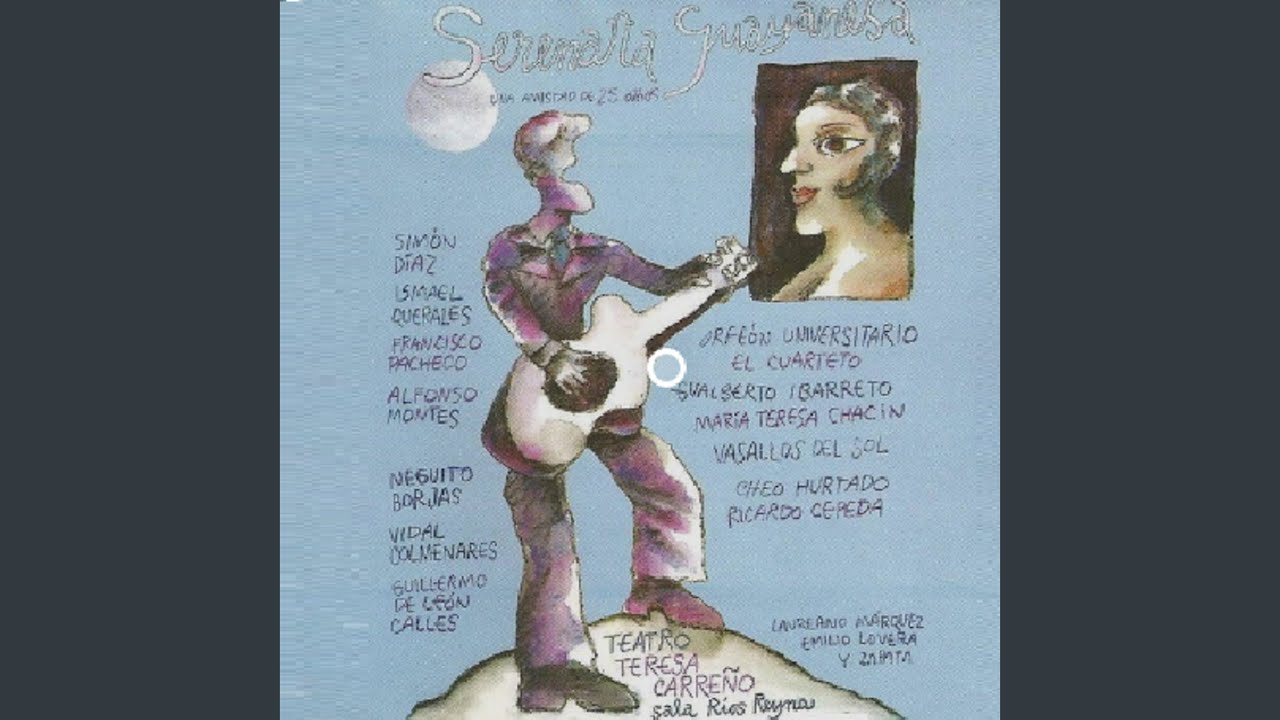 Serenata Guayanesa
UNA AMISTAD DE 25 AÑOS
SIMÓN
DÍAZ
ISMAEL
QUERALES
FRANCISCO
PACHECO
ALFONSO
MONTES
NEGUITO
BORJAS
VIDAL
COLMENARES
GUILLERMO
DE LEÓN
CALLES
ORFEÓN UNIVERSITARIO
EL CUARTETO
GUALBERTO IBARRETO
MARÍA TERESA CHACIN
VASALLOS DEL SOL
CHEO HURTADO
RICARDO CEPEDA
LAUREANO MÁRQUEZ
EMILIO LOVERA
Y ZAPATA
TEATRO
TERESA
CARREÑO
Sala Ríos Reyna